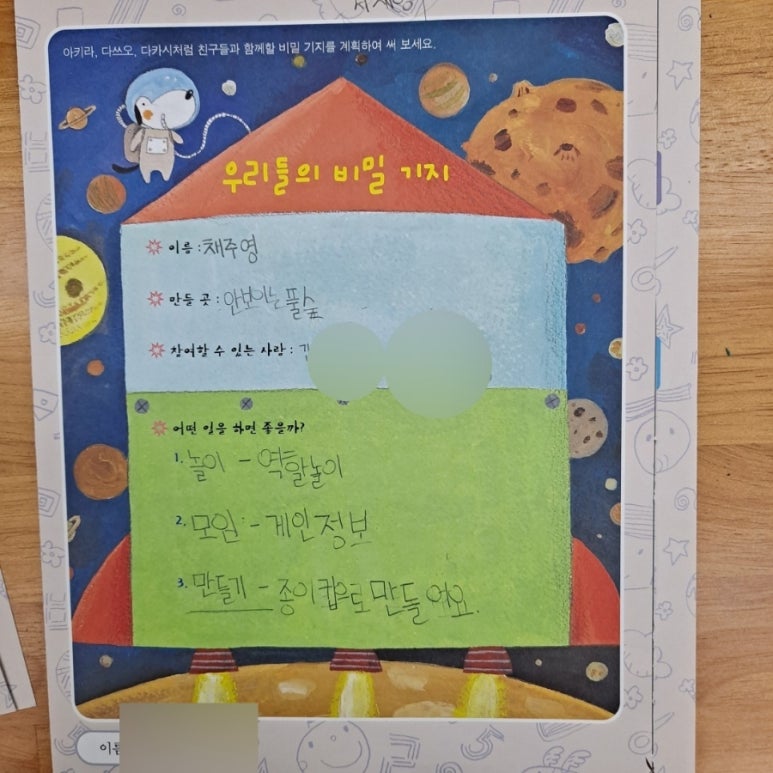 아키라, 다쓰오, 다카시처럼 친구들과 함께할 비밀 기지를 계획하여 써 보세요.
우리들의 비밀 기지
이름 : 채주영
만들 곳 : 안보이는 풀숲
참여할 수 있는 사람 :
어떤 일을 하면 좋을까?
1. 놀이 - 역할놀이
2. 모임 - 게인정보
3. 만들기 - 종이컵으로 만들어요.
이름